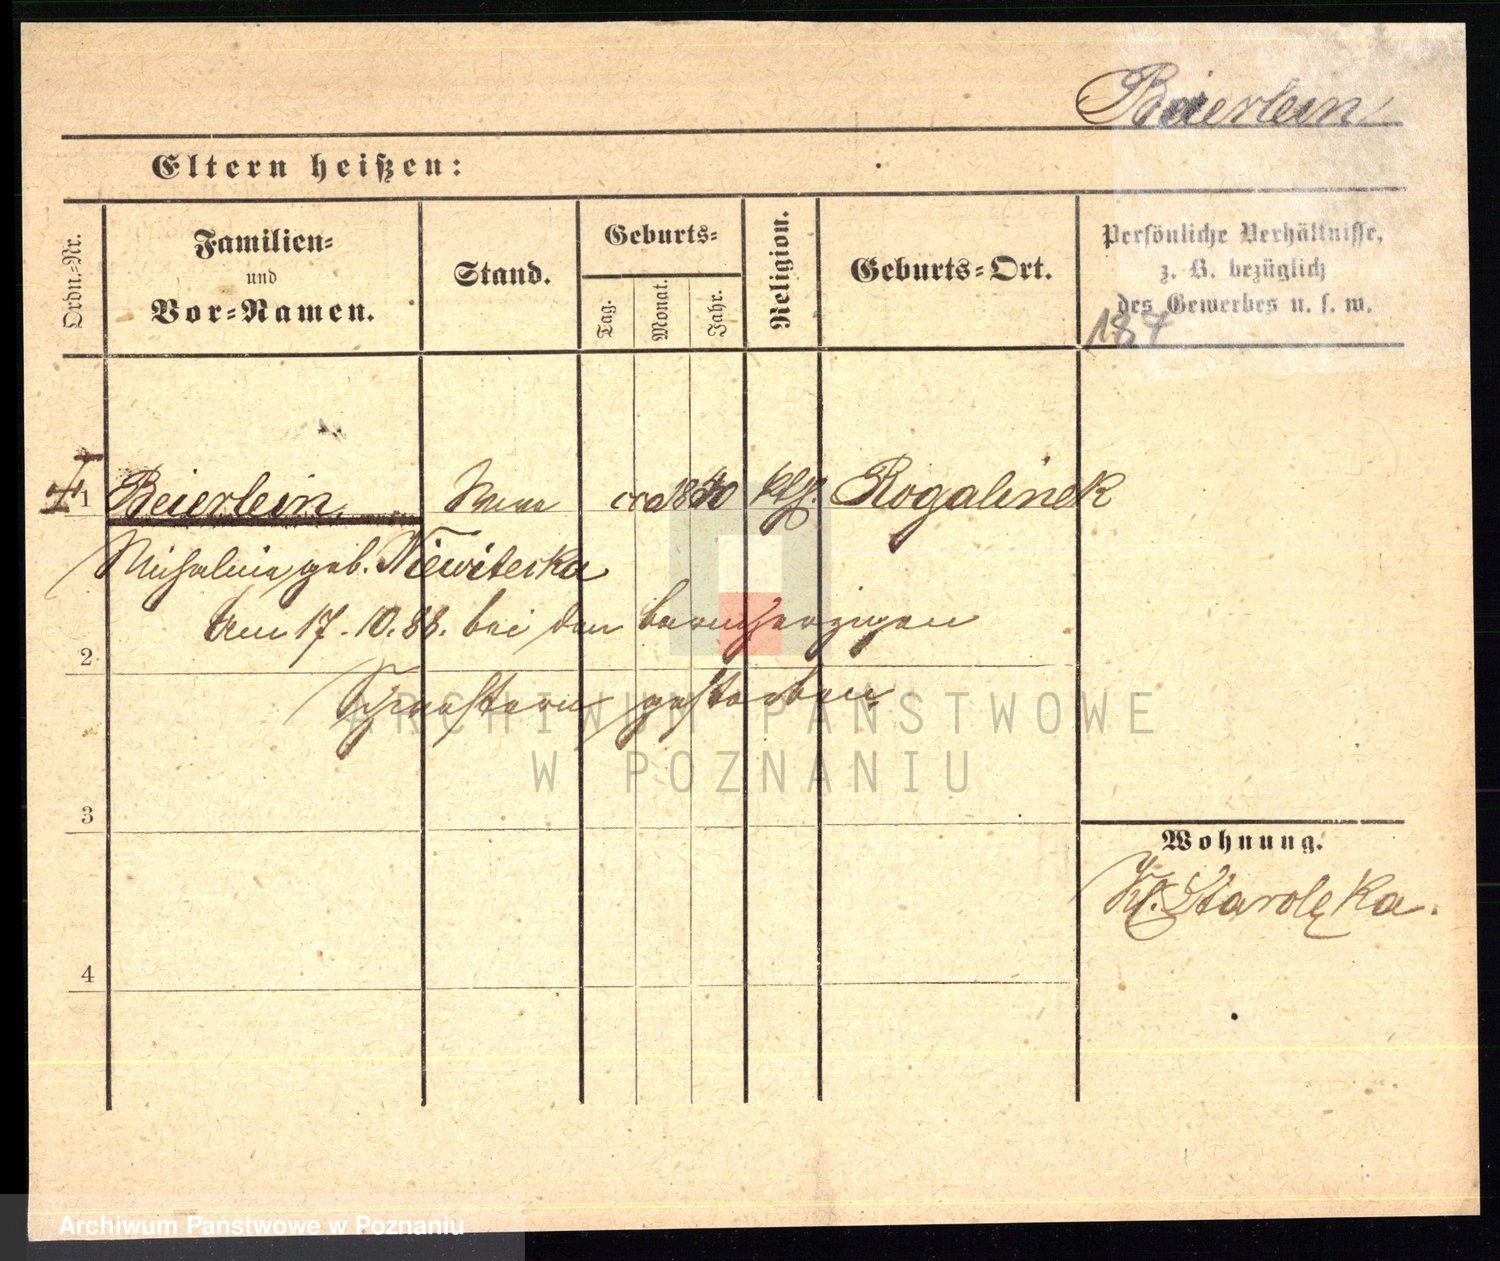 Beierlein
Eltern heißen:
Ordn.-Nr.
Familien-
und
Vor-Namen.
Stand.
Geburts-
Tag.
Monat.
Jahr.
Religion.
Geburts-Ort.
Persönliche Verhältnisse,
z. B. bezüglich
des Gewerbes u. s. w.
187
1 Beierlein ca 1840 kth. Rogalinek
geb. Niewitecka
Am 17.10.88. bei den barmherzigen
2
Schwestern gestorben.
ARCHIWUM PAŃSTWOWE
W POZNANIU
3
Wohnung.
Kl. Starolęka.
4
Archiwum Państwowe w Poznaniu